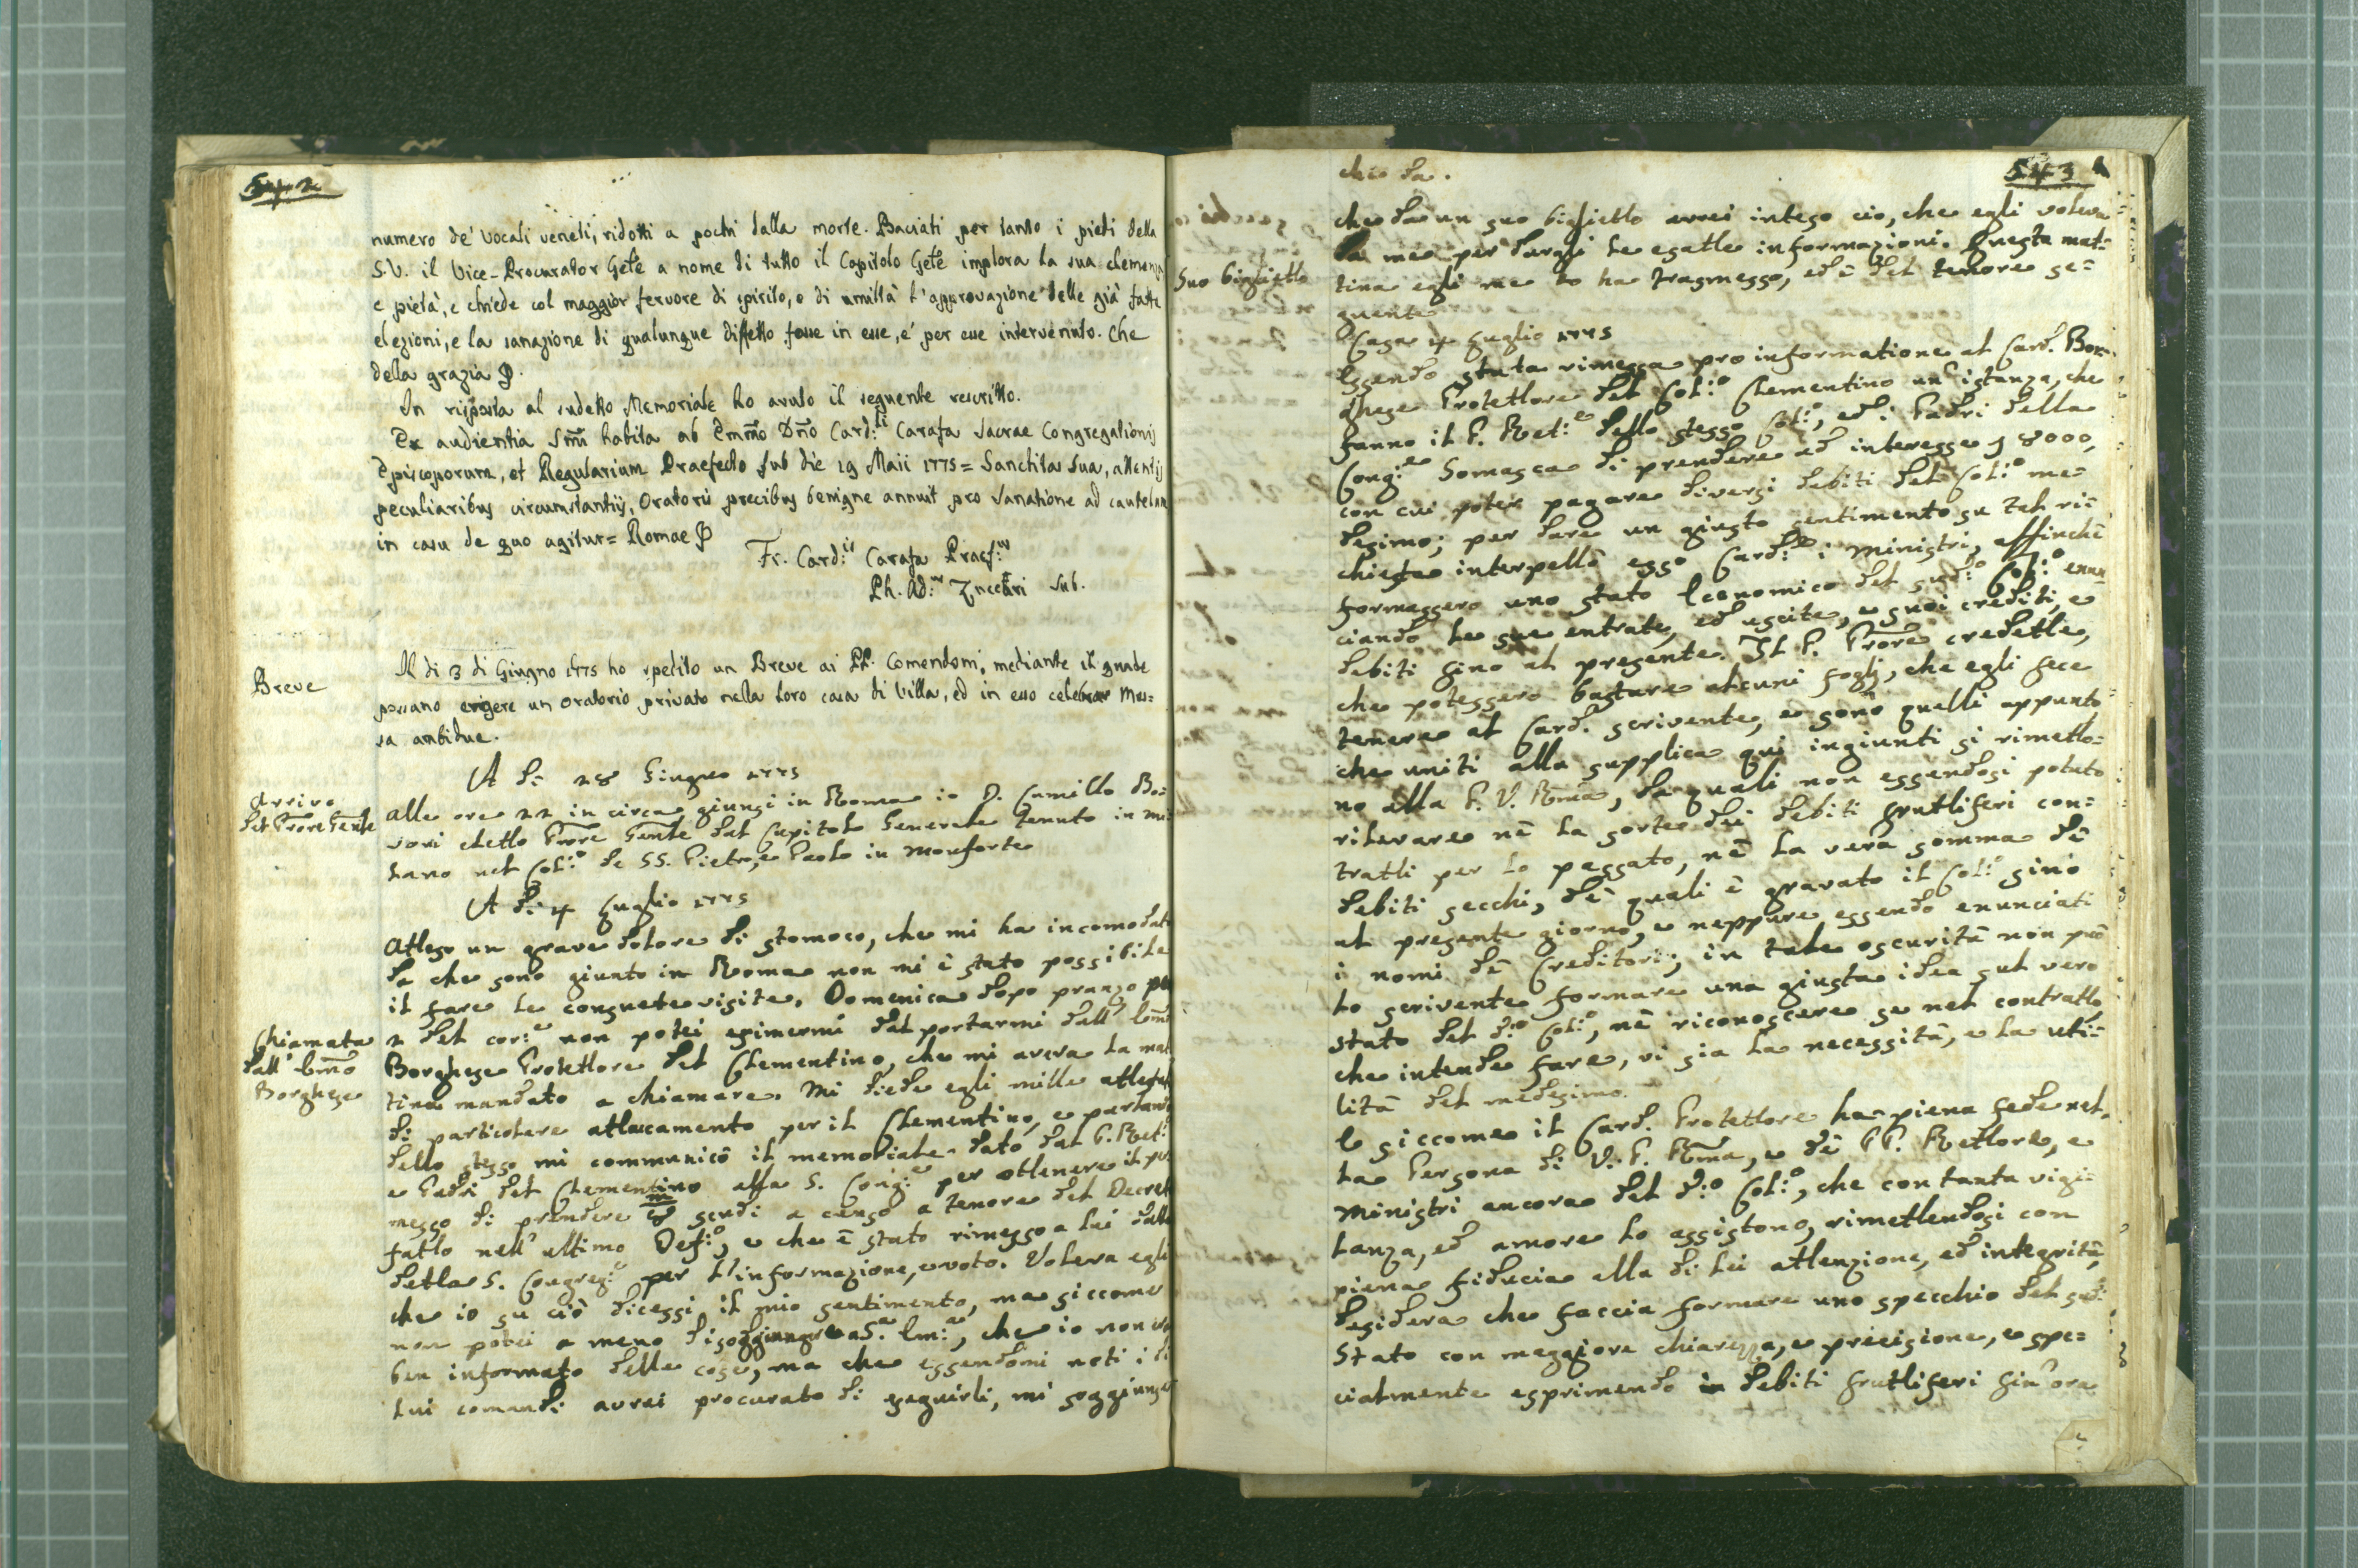 542
numero de' Vocali veneti, ridotti a pochi dalla morte. Baciati per tanto i piedi della
S.V. il Vice-Procurator Gēle a nome di tutto il Capitolo Gēle implora la sua clemenza
e pietà, e chiede col maggior fervore di spirito, e di umiltà l'approvazione delle già fatte
elezioni, e la sanazione di qualunque diffetto fosse in esse, e' per esse intervenuto. Che
della grazia
In risposta al sudetto Memoriale ho avuto il seguente rescritto.
Ex audientia SSmi habita ab Emmo Dno Card:li Carafa Sacrae Congregationis
Episcoporum, et Regularium Praefecto sub die 19 Maii 1775 = Sanctitas sua, attentis
peculiaribus circumstantiis, Oratoris precibus benigne annuit pro sanatione ad cautelam
in casu de quo agitur = Romae
Fr. Card:lis Carafa Praef:us
Ph. Ad:us Zuccari Sub.
Breve
Il di 3 di Giugno 1775 ho spedito un Breve ai PP. Comendoni, mediante il quale
possano erigere un oratorio privato nella loro casa di Villa, ed in esso celebrar Mes=
sa ambidue.
A dì 28 Giugno 1775
Arrivo
del Prore Genle
alle ore 22 in circa giunsi in Roma io D. Camillo Bo=
vori eletto Prore Genle dal Capitolo Generale tenuto in Mi
lano nel Col:o de SS. Pietro, e Paolo in Monforte
A dì 4 Luglio 1775
Atteso un grave dolore di stomoco, che mi ha incomodato
da che sono giunto in Roma non mi è stato possibile
il fare le consuete visite. Domenica dopo pranzo
Chiamata
dall' Emo
Borghese
2 del cor:e non potei esimermi dal portarmi dall' Emo
Borghese Protettore del Clementino, che mi aveva la mat
tina mandato a chiamare. Mi diede egli mille attestati
di particolare attaccamento per il Clementino, e parlando
dello stesso mi communicò il memoriale dato dal P. Ret:e
e Padri del Clementino alla S. Cong:e per ottenere il per
messo di prendere 8m scudi a censo a tenore del Decreto
fatto nell' ultimo Def:o, e che è stato rimesso a lui dalla
detta S. Congreg:e per l'informazione, e voto. Voleva egli
che io su ciò dicessi il mio sentimento, ma siccome
non potei a meno di soggiungere a S.a Em:a, che io non ero
ben informato delle cose, ma che essendomi noti i di
lui comandi avrei procurato di eseguirli, mi soggiunse
543
che da.
che da un suo biglietto avrei inteso cio, che egli voleva
da me per dargli le esatte informazioni. Questa mat=
Suo biglietto
tina egli me lo ha trasmesso, ed è del tenore se=
guente
Casa 4 Luglio 1775
Essendo stata rimessa pro informatione al Card. Bor=
ghese Protettore del Col:o Clementino un' istanza, che
fanno il P. Ret:e dello stesso Col:o, ed i Padri della
Cong:e Somasca di prendere ad interesse 8000,
con cui poter pagare diversi debiti del Col:o me=
desimo; per dare un giusto sentimento su tal ri=
chiesta interpellò esso Card:le i Ministri, affinchè
formassero uno stato Economico del sud:o Col:o enun
ciando le sue entrate, ed uscite, e suoi crediti, e
debiti fino al presente. Il P. Prore credette,
che potessero bastare alcuni fogli, che egli fece
tenere al Card. scrivente, e sono quelli appunto
che uniti alla supplica qui ingiunti si rimetto=
no alla P. V. Rma, da quali non essendosi potuto
rilevare nè la sorte dei debiti fruttiferi con=
tratti per lo passato, nè la vera somma dè
debiti secchi, dè quali è gravato il Col:o sino
al presente giorno, e neppure essendo enunciati
i nomi dè Creditori; in tale oscurità non può
lo scrivente formare una giusta idea sul vero
stato del d:o Col:o, nè riconoscere se nel contratto,
che intende fare, vi sia la necessità, e la uti=
lità del medesimo.
E siccome il Card. Protettore ha piena fede nel=
la Persona di V. P. Rma, e dè PP. Rettore, e
Ministri ancora del d:o Col:o, che con tanta vigi=
lanza, ed amore lo assistono, rimettendosi con
piena fiducia alla di lei attenzione, ed integrità,
desidera che faccia formare uno specchio del sud:
stato con maggiore chiarezza, e precisione, e spe=
cialmente esprimendo in debiti fruttiferi fin' ora